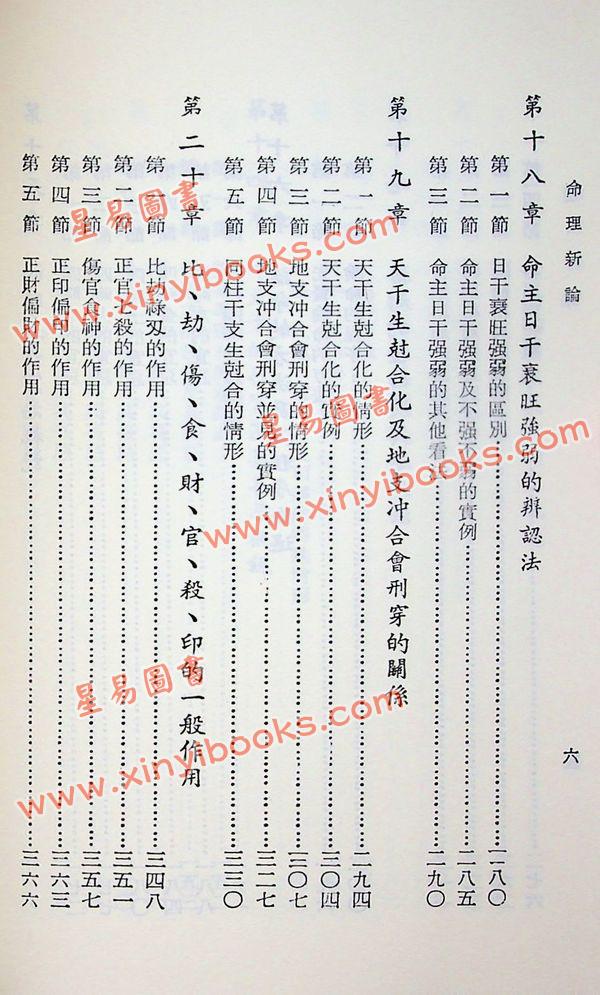 命理新論
六
第十八章 命主日干衰旺強弱的辨認法
第一節 日干衰旺强弱的區別……二八〇
第二節 命主日干强弱及不强不弱的實例……二八五
第三節 命主日干强弱的其他看法……二九〇
第十九章 天干生尅合化及地支冲合會刑穿的關係
第一節 天干生尅合化的情形……二九四
第二節 天干生尅合化的實例……三〇四
第三節 地支冲合會刑穿的情形……三〇七
第四節 地支冲合會刑穿並見的實例……三二七
第五節 同柱干支生尅合的情形……三三〇
第二十章 比、劫、傷、食、財、官、殺、印的一般作用
第一節 比劫祿刄的作用……三四八
第二節 正官七殺的作用……三五一
第三節 傷官食神的作用……三五七
第四節 正印偏印的作用……三六三
第五節 正財偏財的作用……三六六
星易圖書
www.xinyibooks.com
星易圖書
www.xinyibooks.com
星易圖書
www.xinyibooks.com